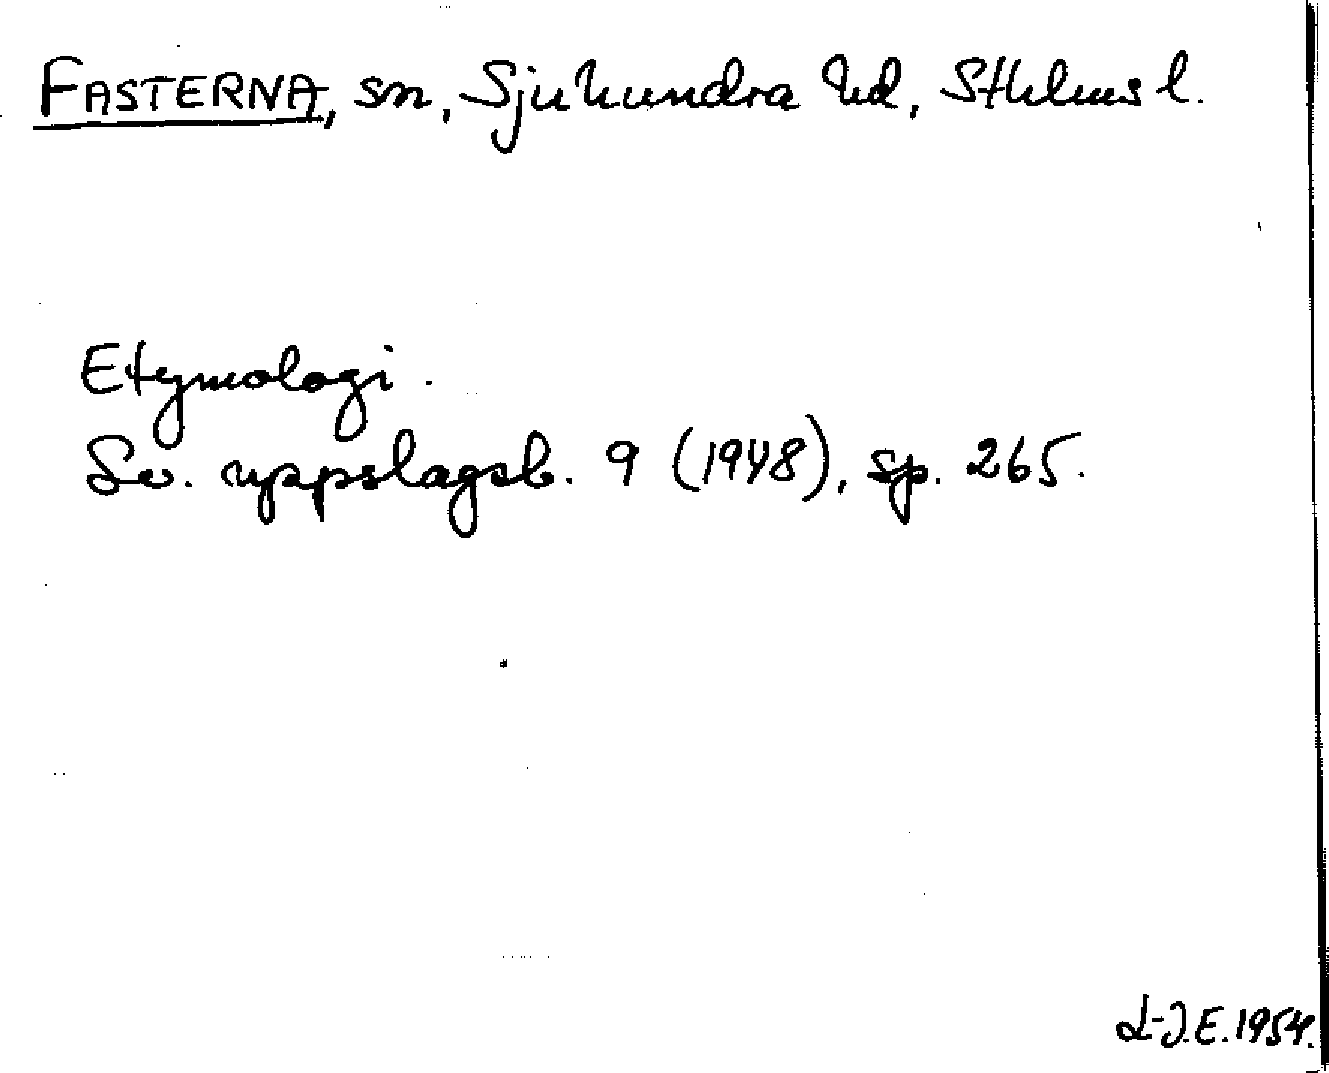 FASTERNA, sn, Sjuhundra hd, Sthlms l.
Etymologi.
Sv. uppslagsb. 9 (1948), sp. 265.
L-J.E. 1954.